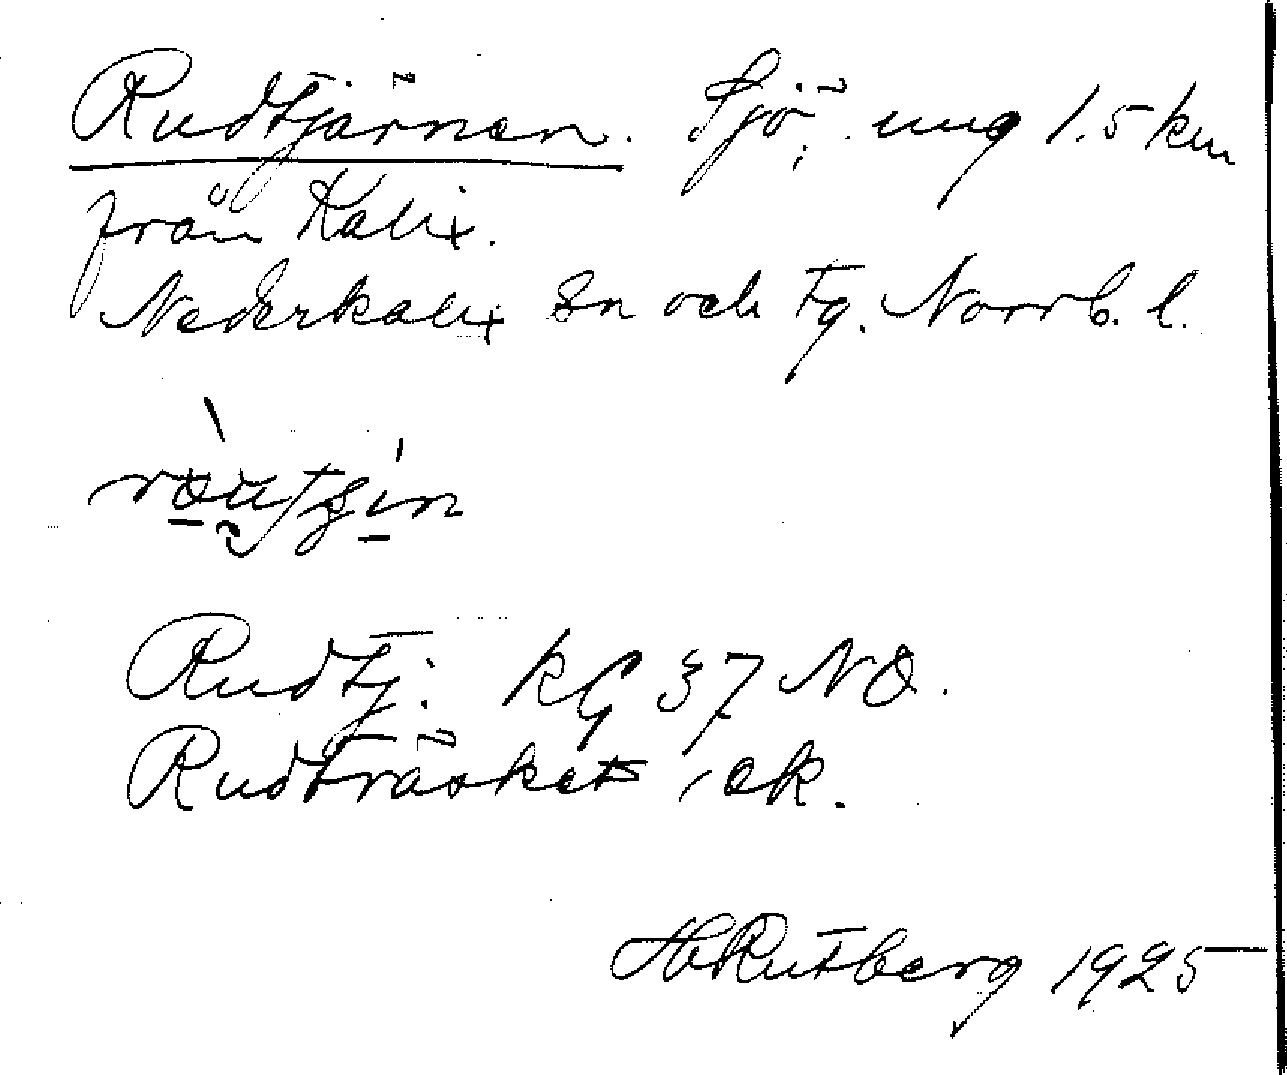 Rudtjärnen. Sjö, ung 1.5 km
från Kalix.
Nederkalix sn och tg. Norrb. l.
Rudtj. KG 37 NO.
Rudträsket ek.
H Rutberg 1925